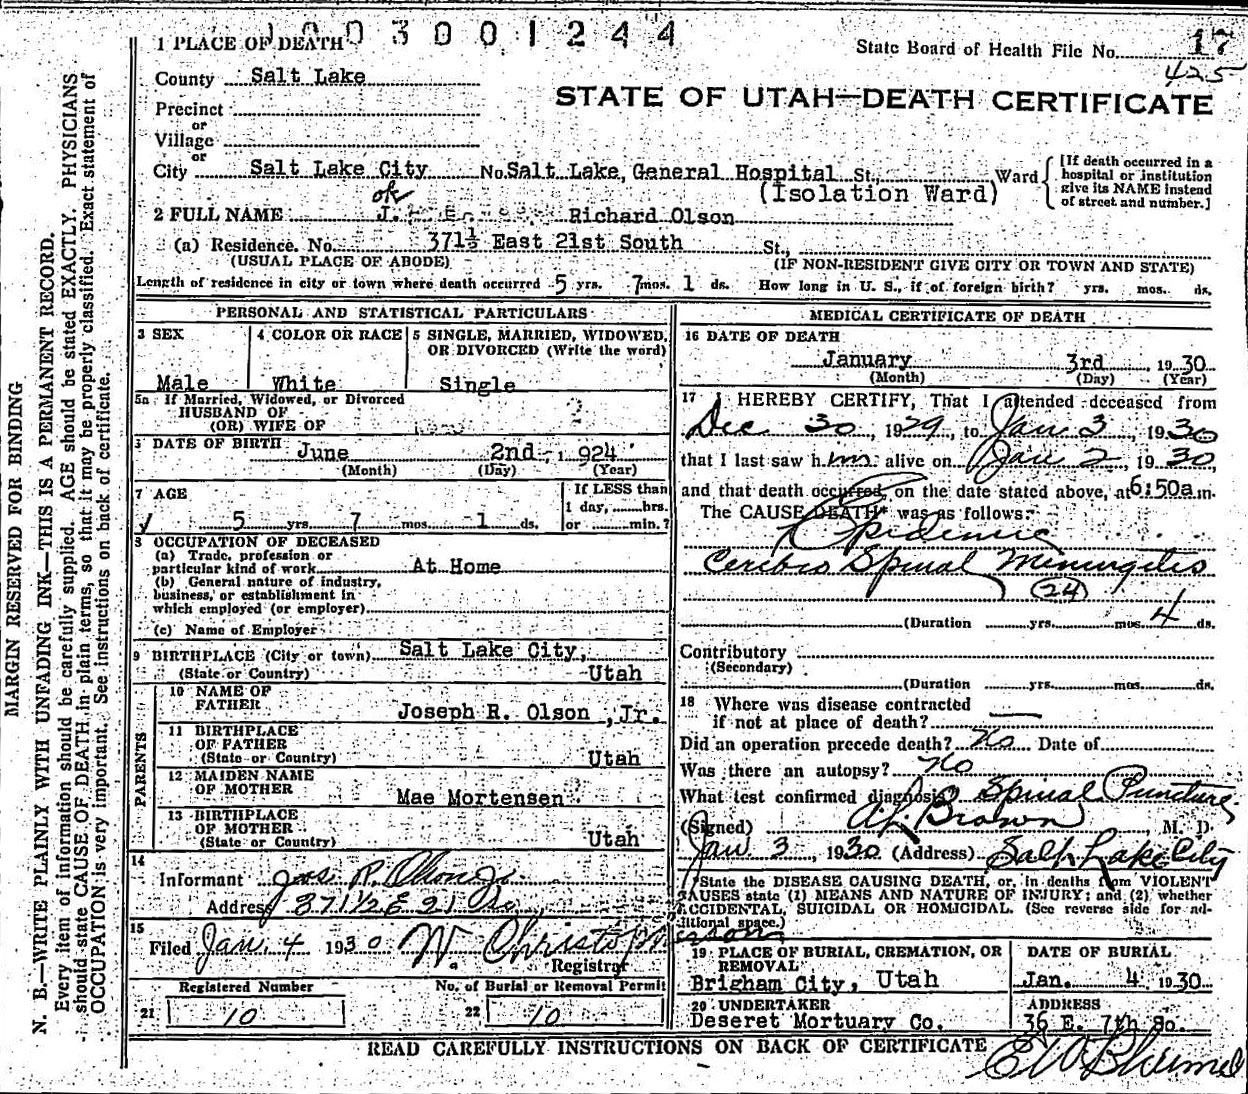 1003001244
1 PLACE OF DEATH
State Board of Health File No. 17
425
County Salt Lake
STATE OF UTAH—DEATH CERTIFICATE
Precinct
or
Village
or
City Salt Lake City No. Salt Lake, General Hospital St., Ward
(Isolation Ward)
[If death occurred in a
hospital or institution
give its NAME instead
of street and number.]
ok
2 FULL NAME J. Richard Olson
(a) Residence. No. 371½ East 21st South St.,
(USUAL PLACE OF ABODE) (IF NON-RESIDENT GIVE CITY OR TOWN AND STATE)
Length of residence in city or town where death occurred 5 yrs. 7 mos. 1 ds. How long in U. S., if of foreign birth? yrs. mos. ds.
PERSONAL AND STATISTICAL PARTICULARS
3 SEX
Male
4 COLOR OR RACE
White
5 SINGLE, MARRIED, WIDOWED,
OR DIVORCED (Write the word)
Single
5a If Married, Widowed, or Divorced
HUSBAND OF
(OR) WIFE OF
DATE OF BIRTH June 2nd, 1924
(Month) (Day) (Year)
7 AGE
5 yrs. 7 mos. 1 ds.
If LESS than
1 day, hrs.
or min.?
8 OCCUPATION OF DECEASED
(a) Trade, profession or
particular kind of work At Home
(b) General nature of industry,
business, or establishment in
which employed (or employer)
(c) Name of Employer
9 BIRTHPLACE (City or town) Salt Lake City,
(State or Country) Utah
PARENTS
10 NAME OF
FATHER Joseph R. Olson, Jr.
11 BIRTHPLACE
OF FATHER
(State or Country) Utah
12 MAIDEN NAME
OF MOTHER Mae Mortensen
13 BIRTHPLACE
OF MOTHER
(State or Country) Utah
14
Informant Jos R. Olson Jr
Address 371 1/2 E 21 So
15
Filed Jan. 4 1930 W. Christopherson
Registrar
Registered Number
21 10
No. of Burial or Removal Permit
22 10
MEDICAL CERTIFICATE OF DEATH
16 DATE OF DEATH
January 3rd, 1930
(Month) (Day) (Year)
17 I HEREBY CERTIFY, That I attended deceased from
Dec 30, 1929, to Jan 3, 1930
that I last saw him alive on Jan 2, 1930,
and that death occurred, on the date stated above, at 6:50a m.
The CAUSE DEATH* was as follows:
Epidemic
Cerebro Spinal Miningitis
(24)
(Duration yrs. mos. 4 ds.
Contributory
(Secondary)
(Duration yrs. mos. ds.
18 Where was disease contracted
if not at place of death?
Did an operation precede death? No Date of
Was there an autopsy? No
What test confirmed diagnosis? Spinal Puncture
(Signed) A L Brown, M. D.
Jan 3, 1930 (Address) Salt Lake City
State the DISEASE CAUSING DEATH, or, in deaths from VIOLENT
CAUSES state (1) MEANS AND NATURE OF INJURY; and (2) whether
ACCIDENTAL, SUICIDAL OR HOMICIDAL. (See reverse side for ad-
ditional space.)
19 PLACE OF BURIAL, CREMATION, OR
REMOVAL
Brigham City, Utah
DATE OF BURIAL
Jan. 4 1930
20 UNDERTAKER
Deseret Mortuary Co.
ADDRESS
36 E. 7th So.
READ CAREFULLY INSTRUCTIONS ON BACK OF CERTIFICATE
MARGIN RESERVED FOR BINDING
N. B.—WRITE PLAINLY WITH UNFADING INK—THIS IS A PERMANENT RECORD.
Every item of information should be carefully supplied. AGE should be stated EXACTLY. PHYSICIANS
should state CAUSE OF DEATH in plain terms, so that it may be properly classified. Exact statement of
OCCUPATION is very important. See instructions on back of certificate.